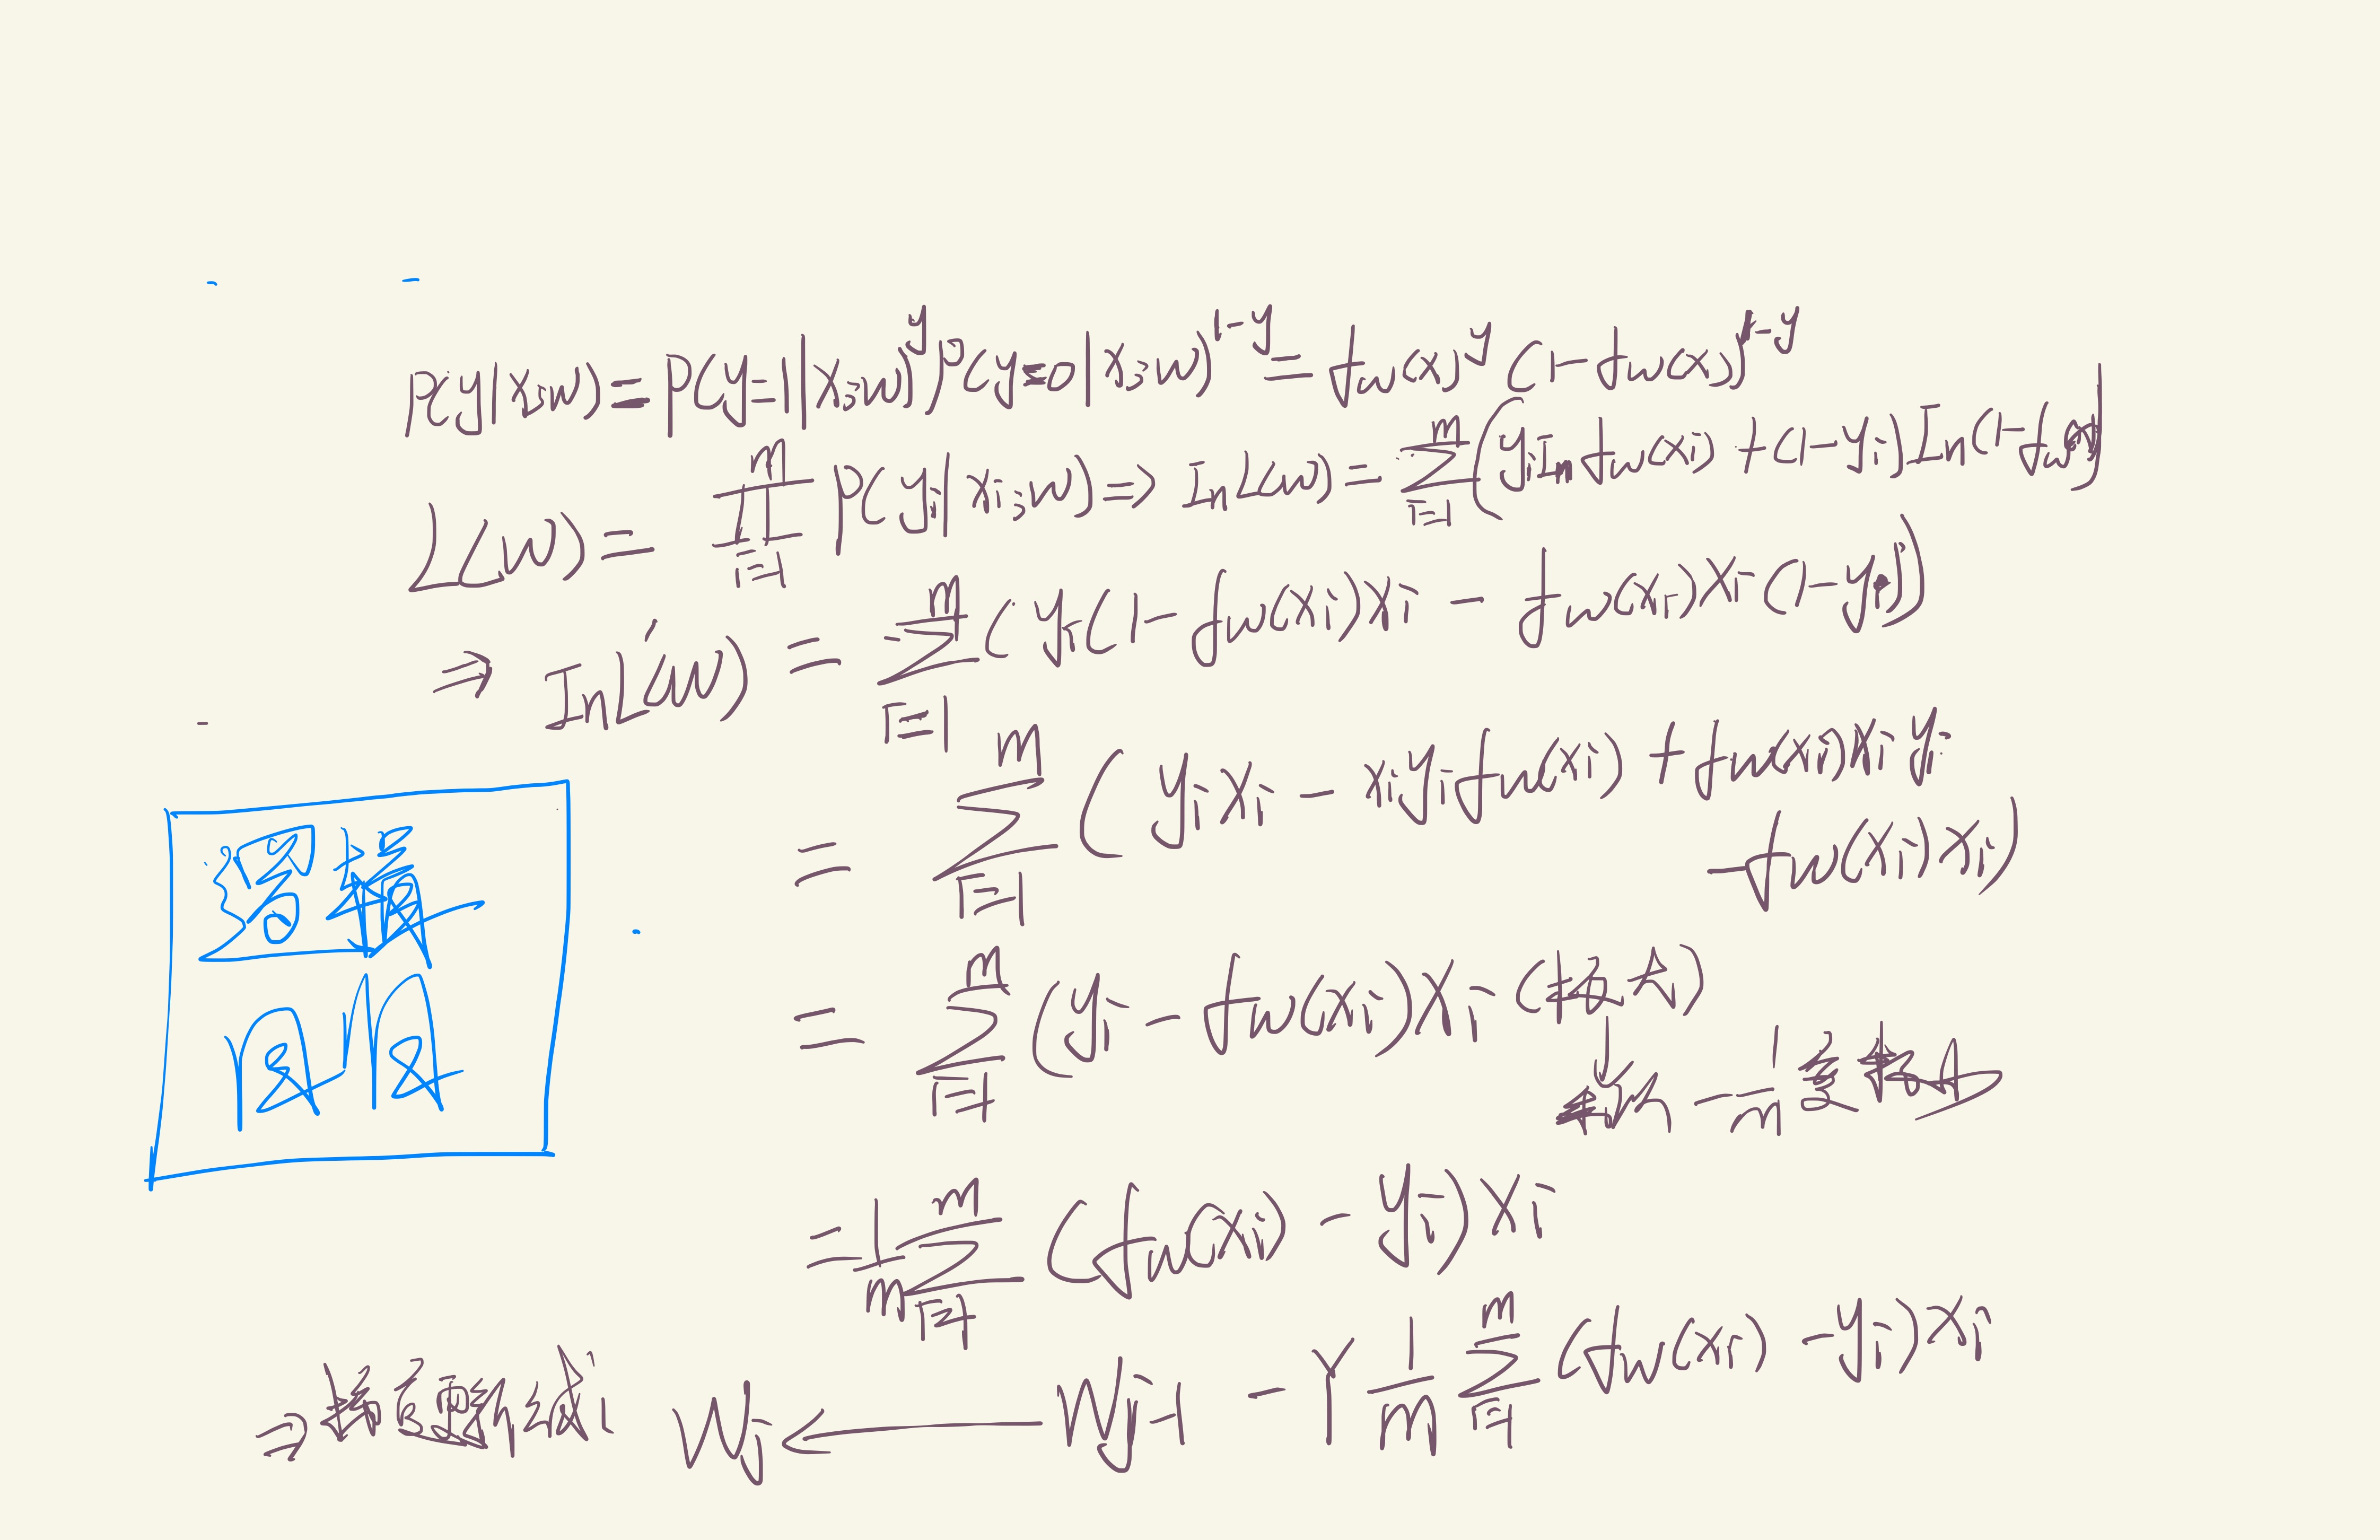 P(y|x;w) = P(y=1|x;w)^y P(y=0|x;w)^{1-y} = f_w(x)^y (1-f_w(x))^{1-y}
L(w) = ∏_{i=1}^{m} P(y_i|x_i;w) ⇒ ln L(w) = ∑_{i=1}^{m} (y_i ln f_w(x_i) + (1-y_i) ln(1-f_w(x_i))
⇒ ln L'(w) = ∑_{i=1}^{m} (y_i(1-f_w(x_i))x_i - f_w(x_i)x_i(1-y_i))
= ∑_{i=1}^{m} (y_i x_i - x_i y_i f_w(x_i) + f_w(x_i)x_i y_i
- f_w(x_i)x_i)
= ∑_{i=1}^{m} (y_i - f_w(x_i))x_i (最大)
↓
- 1/m
= 1/m ∑_{i=1}^{m} (f_w(x_i) - y_i)x_i
⇒ W_j ← W_{j-1} - γ 1/m ∑_{i=1}^{m} (f_w(x_i) - y_i)x_i
邏輯
回歸